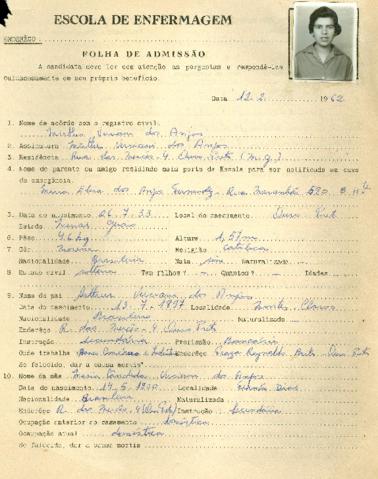 ESCOLA DE ENFERMAGEM
ENDERÊÇO
FOLHA DE ADMISSÃO
A candidata deve ler com atenção as perguntas e respondê-las
cuidadosamente em seu próprio benefício.
Data 12.2. 1962
1. Nome de acôrdo com o registro civil.
dos Anjos
2. Assinatura dos Anjos
3. Residência Rua das Mercês - 4 Ouro Preto (M.G.)
4. Nome do parente ou amigo residindo mais perto da Escola para ser notificado em caso
de emergência.
Maria dos Anjos Rua Maranhão
5. Data do nascimento 26.7.33 Local do nascimento Ouro Preto
Estado Minas Gerais
6. Pêso 46 kg Altura 1,57 m
7. Côr Morena Religião Católica
Nacionalidade Brasileira Nata sim Naturalizada
8. Estado civil solteira Tem filhos? - Quantos? - Idades
9. Nome do pai Arthur dos Anjos
Data do nascimento 13.7.1897 Localidade Montes Claros
Nacionalidade Brasileira Naturalizado
Enderêço R. das Mercês - 4 Ouro Preto
Instrução Secundária Profissão Bancário
Onde trabalha Banco Enderêço Ouro Preto
Se falecido, dar a causa mortis
10. Nome da mãe Maria dos Anjos
Data do nascimento 14.5. Localidade
Nacionalidade Brasileira Naturalizada
Enderêço R. das Mercês - 4 Instrução Secundária
Ocupação anterior ao casamento doméstica
Ocupação atual doméstica
Se falecida, dar a causa mortis